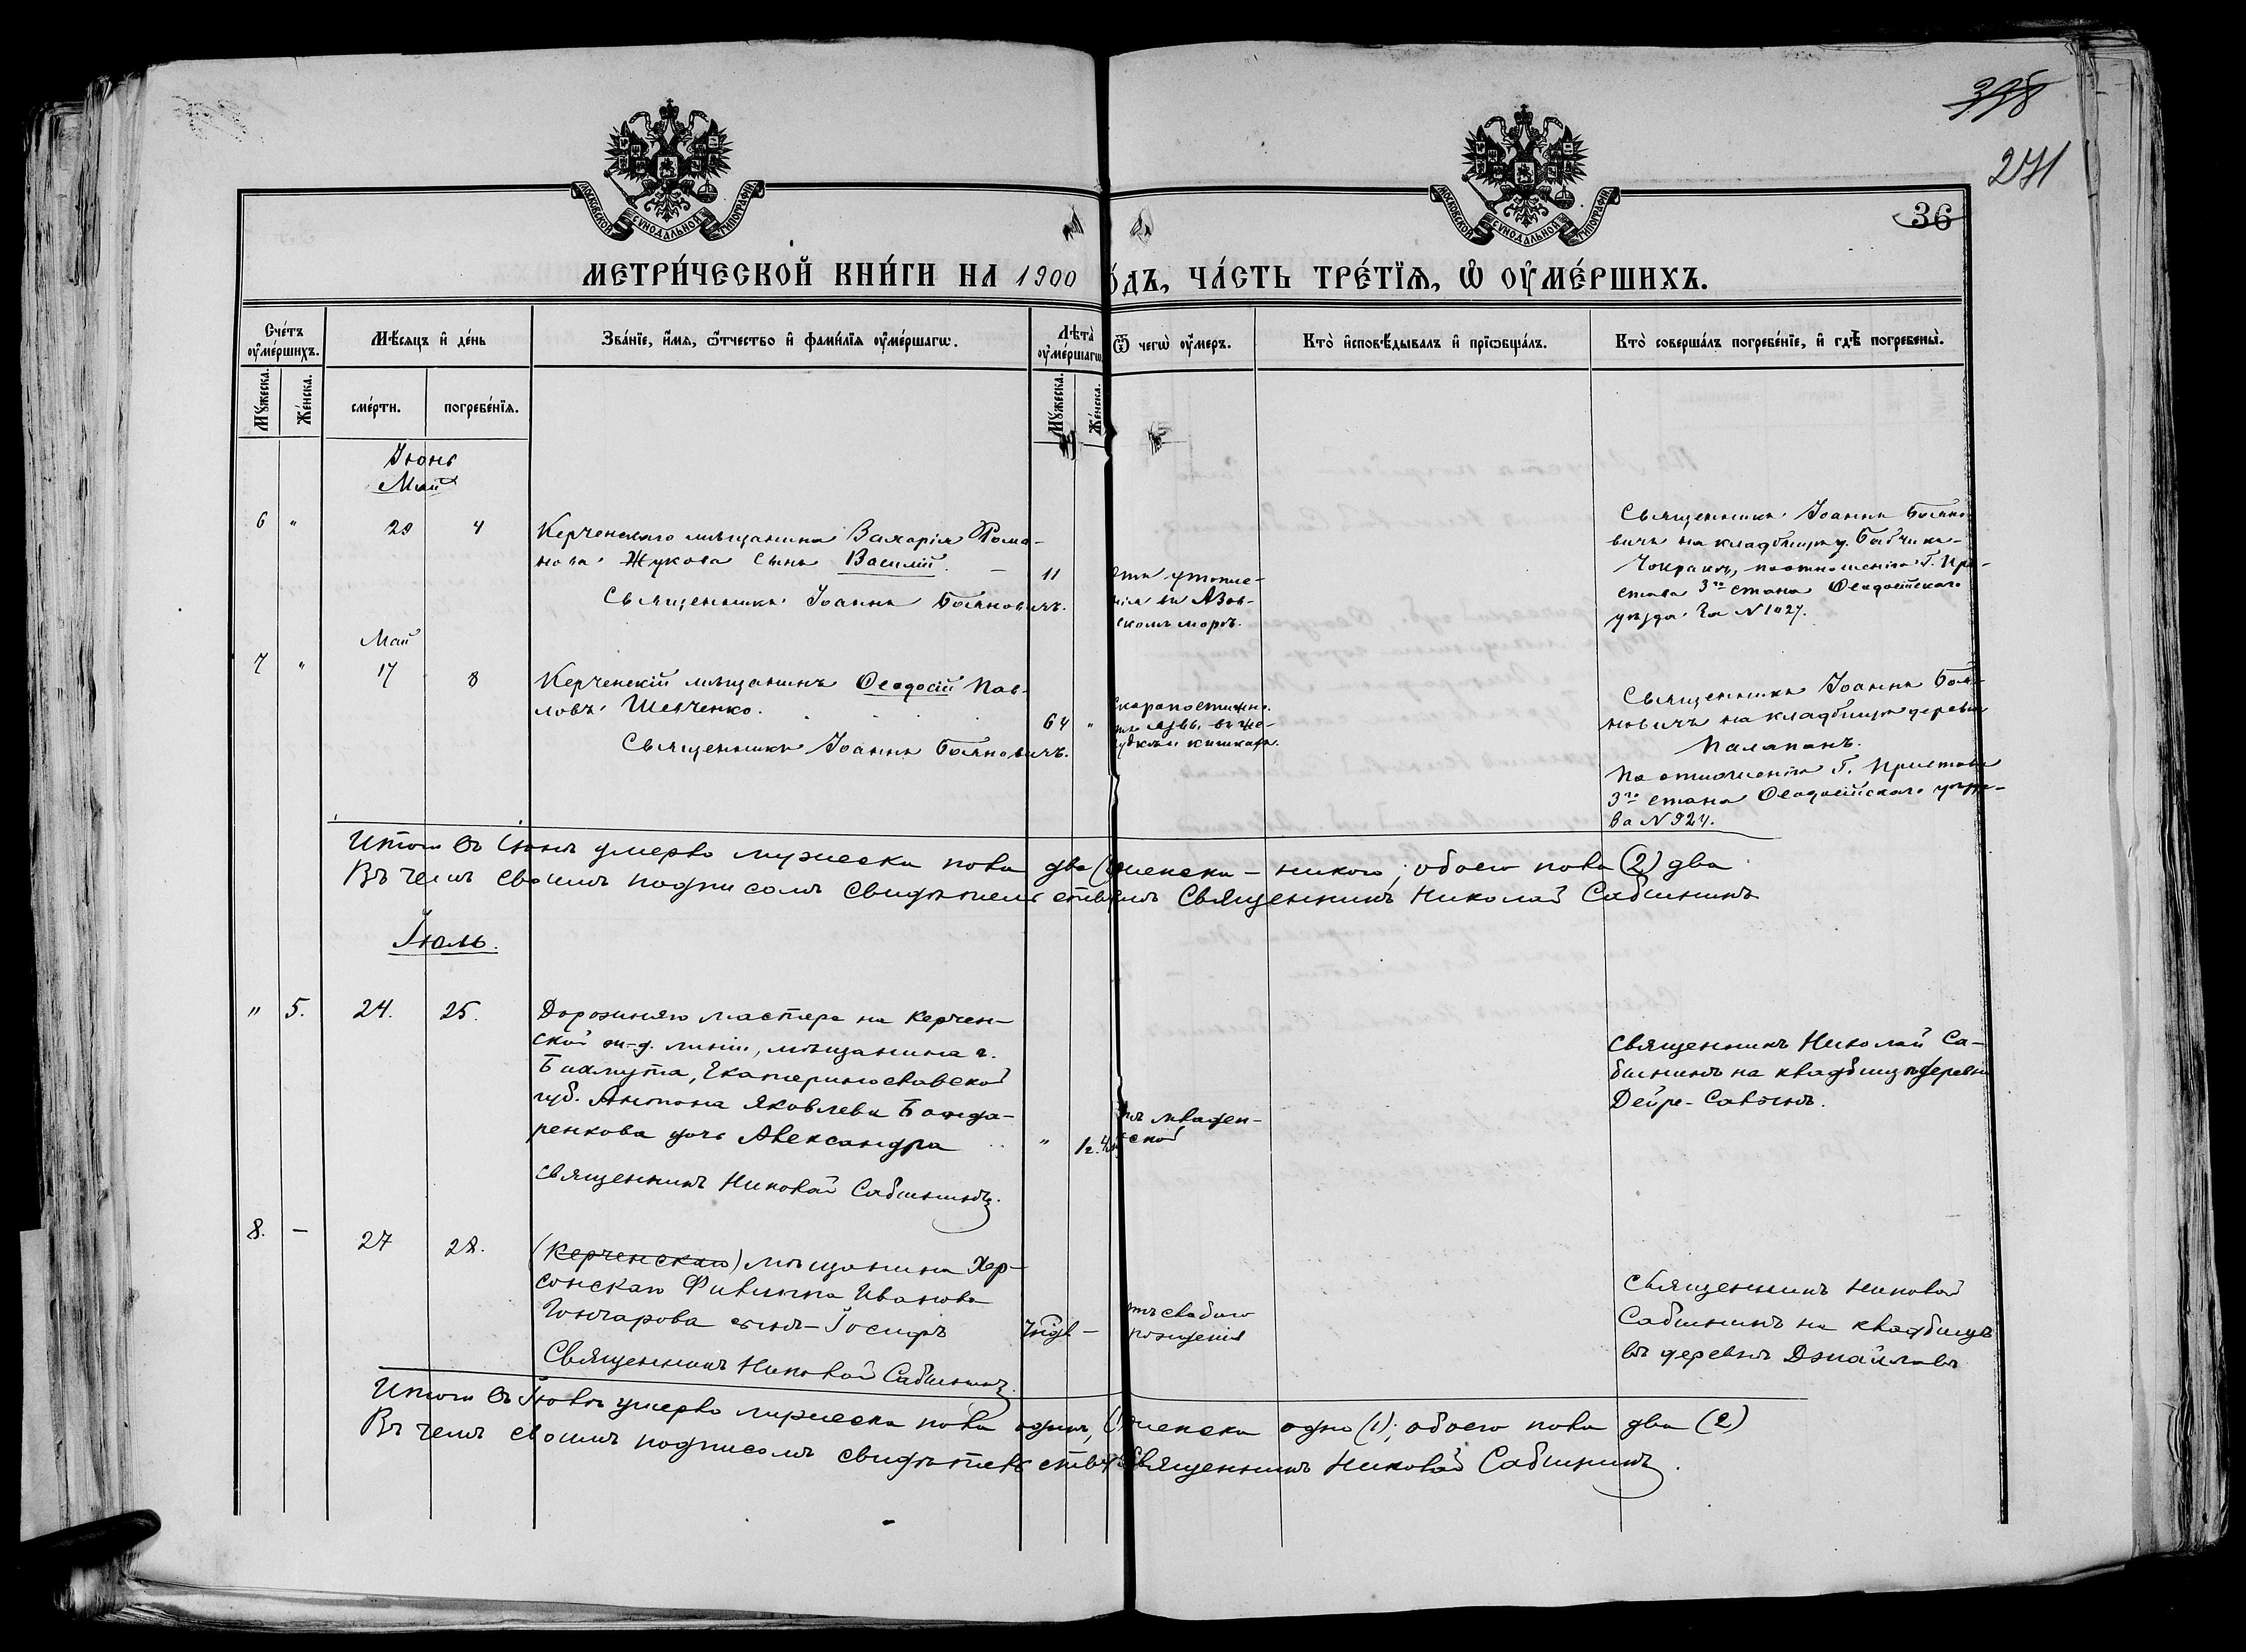 398
271
36
МОСКОВСКОЙ СУНОДАЛЬНОЙ ТИПОГРАФІИ
МОСКОВСКОЙ СУНОДАЛЬНОЙ ТИПОГРАФІИ
МЕТРИ́ЧЕСКОЙ КНИ́ГИ НА 1900 ГО́ДЪ, ЧА́СТЬ ТРЕ́ТІѦ, Ѡ҆ ОУ҆МЕ́РШИХЪ.
Сче́тъ оу҆ме́ршихъ.
Мѣ́сяцъ и҆ де́нь
Зва́нїе, и҆́мѧ, ѻ҆́тчество и҆ фами́лїѧ оу҆ме́ршагѡ.
Лѣта̀ оу҆ме́ршагѡ.
Ѿ чегѡ̀ оу҆́меръ.
Кто̀ и҆сповѣ́дывалъ и҆ прїѡбща́лъ.
Кто̀ соверша́лъ погребе́нїе, и҆ гдѣ̀ погребены̀.
Мꙋ́жеска.
Же́нска.
сме́рти.
погребе́нїѧ.
Мꙋ́жеска.
Же́нска.
Іюнь
Май
6 " 29 4
Керченскаго мѣщанина Захарія Рома-
нова Жукова сынъ Василій. — 11
Священникъ Іоаннъ Бояновичъ.
утопле-
нія въ Азов-
скомъ морѣ.
Священникъ Іоаннъ Бояно-
вичъ на кладбищѣ д. Бабчикъ-
Чокракъ, по отношенію Г. При-
става 3го стана Ѳеодосійскаго
уѣзда за N 1027.
Май
7 " 17 8
Керченскій мѣщанинъ Ѳеодосій Пав-
ловъ Шевченко. 64 "
Священникъ Іоаннъ Бояновичъ.
Скоропостижно
язвъ въ же-
лудкѣ и кишкахъ.
Священникъ Іоаннъ Боя-
новичъ на кладбищѣ деревни
Палапанъ.
По отношенію Г. Пристава
3го стана Ѳеодосійскаго уѣзда
за N 924.
Итого въ Іюнѣ умерло мужеска пола два женска — никого; обоего пола (2) два
Въ чемъ своимъ подписомъ свидѣтельствуемъ Священникъ Николай Сабининъ
Іюль.
" 5. 24. 25.
Дорожняго мастера на Керчен-
ской ж-д. линіи, мѣщанина г.
Бахмута, Екатеринославской
губ. Антона Яковлева Бонда-
ренкова дочь Александра " 1г.
Священникъ Николай Сабининъ.
младен-
ской
Священникъ Николай Са-
бининъ на кладбищѣ деревни
Дейре-Савоюнъ.
8. — 27 28.
(Керченскаго) мѣщанина Хер-
сонскаго Филиппа Иванова
Гончарова сынъ — Іосифъ —
Священникъ Николай Сабининъ.
отъ слабаго
рожденія
Священникъ Николай
Сабининъ на кладбищѣ
въ деревнѣ Джайлавъ
Итого въ Іюлѣ умерло мужеска пола одинъ, женска одно (1); обоего пола два (2)
Въ чемъ своимъ подписомъ свидѣтельствуемъ Священникъ Николай Сабининъ.